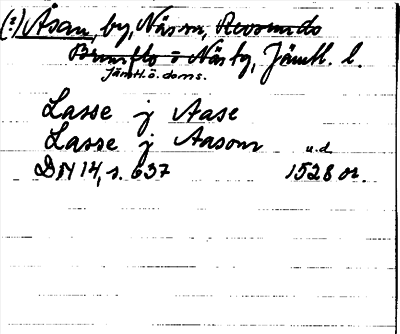 (?) Åsan, by, Näs sn, Revsunds
Brunflo o Näs tg, Jämtl. l.
Jämtl. ö. doms.
Lasse j Aase
Lasse j Aasom u.d
DN 14, s. 637 1528 or.